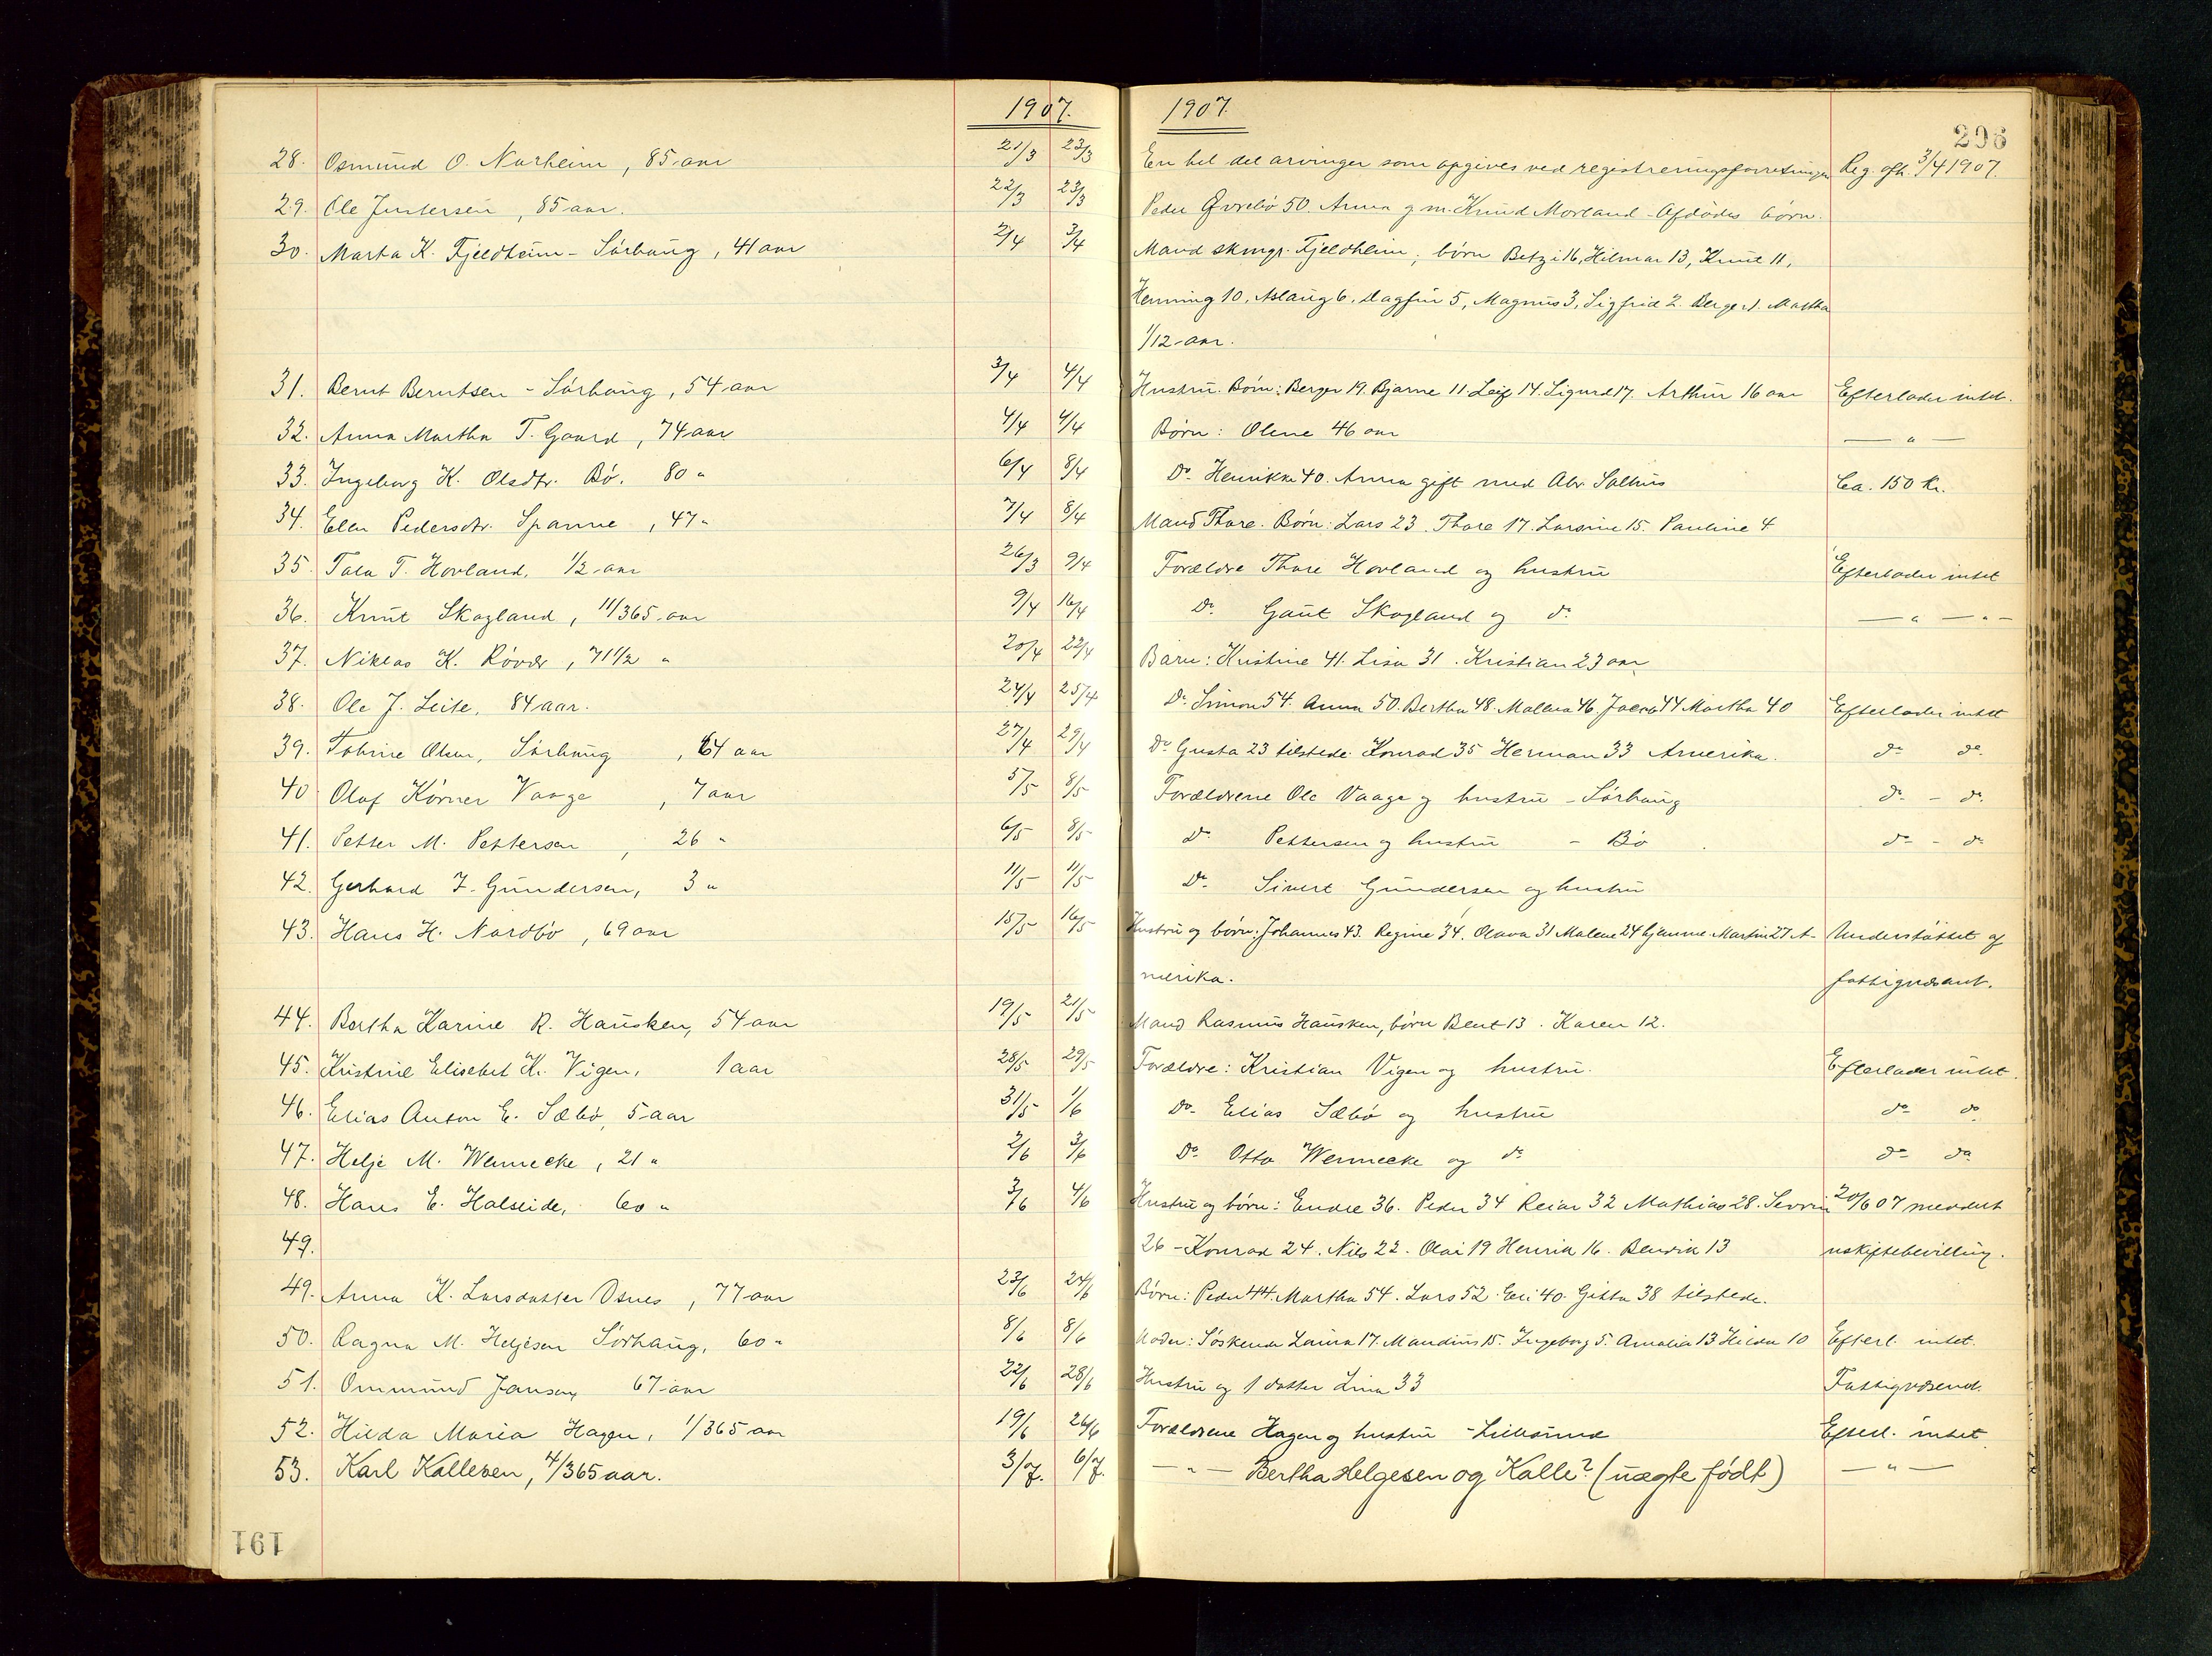 1907.
28. Osmund O. Norheim, 85 aar 21/3 23/3
29. Ole Justersen, 85 aar. 22/3 23/3
30. Marta K. Fjeldheim - Sörhaug, 41 aar 2/4 3/4
31. Bernt Berntsen - Sörhaug, 54 aar 3/4 4/4
32. Anna Martha T. Gaard, 74 aar 4/4 4/4
33. Ingeborg K. Olsdtr. Bö. 80 " 6/4 8/4
34. Ellen Pedersdtr. Spanne, 47 " 7/4 8/4
35. Tala T. Hovland, 1/2 aar 26/3 9/4
36. Knut Skogland, 11/365 aar 9/4 16/4
37. Niklas K. Rövær, 71 1/2 " 20/4 22/4
38. Ole J. Leite, 84 aar. 24/4 25/4
39. Tobine Olsen, Sörhaug, 64 aar 27/4 29/4
40 Olaf Körner Vaage, 7 aar 5/5 8/5
41. Petter M. Pettersen, 26 " 6/5 8/5
42. Gerhard J. Gundersen, 3 " 11/5 11/5
43. Hans H. Nordbö, 69 aar 15/5 16/5
44. Bertha Karine R. Hausken, 54 aar 19/5 21/5
45. Kristine Elisebet K. Vigen, 1 aar 28/5 29/5
46. Elias Anton E. Sæbö, 5 aar 31/5 1/6
47. Helje M. Wennecke, 21 " 2/6 3/6
48. Hans E. Halseide, 60 " 3/6 4/6
49.
49. Anna K. Larsdatter Osnes, 77 aar 23/6 24/6
50. Ragna M. Helgesen Sörhaug, 60 " 8/6 8/6
51. Ommund Jansen, 67 aar 22/6 28/6
52. Hilda Maria Hagen, 1/365 aar 19/6 26/6
53. Karl Kallesen, 4/365 aar. 3/7. 6/7.
191
1907.
296
En hel del arvinger som opgives ved registreringsforretningen Reg. afh. 3/4 1907.
Peder Övrebö 50. Anna g. m. Knud Morland - Afdödes börn.
Mand skmgr. Fjeldheim; börn Betzi 16, Hilmar 13, Knut 11,
Henning 10, Aslaug 6, Dagfin 5, Magnus 3, Sigfrid 2. Berge 1. Martha
1/12 aar.
Hustru. Börn: Berger 19. Bjarne 11. Leif 14. Sigurd 17. Arthur 16 aar Efterlader intet.
Börn: Oline 46 aar — " —
Do. Henrikke 40. Anna gift med Abr. Salhus Ca. 150 Kr.
Mand Thore. Börn: Lars 23. Thore 17. Larsine 15. Pauline 4
Forældre Thore Hovland og hustru Efterlader intet
Do. Gaut Skogland og do. — " — " —
Barn: Kristine 41. Lisa 31. Kristian 23 aar
Do. Simon 54. Anna 50. Bertha 48. Mallena 46. Jacob 44 Martha 40 Efterlader intet
Do. Gusta 23 tilstede. Konrad 35 Herman 33 Amerika. do. do.
Forældrene Ole Vaage og hustru - Sörhaug do. - do.
Do. Pettersen og hustru - Bö. do. - do.
Do. Sivert Gundersen og hustru
Hustru og börn: Johannes 43. Regine 34. Olava 31 Malene 24 hjemme Martin 27 A- Understöttet af
merika. fattigvæsent.
Mand Rasmus Hausken, börn Bent 13. Karen 12.
Forældre: Kristian Vigen og hustru. Efterlader intet.
Do. Elias Sæbö og hustru do. do.
Do. Otto Wennecke og do. do. do.
Hustru og börn: Endre 36. Peder 34 Reiar 32 Mathias 28. Severin 20/6 07 meddelt
26 - Konrad 24. Nils 22. Olai 19 Henrik 16. Bendik 13 uskiftebevilling.
Börn: Peder 44. Martha 54. Lars 52. Eli 40. Gitta 38 tilstede.
Moder: Söskende Laura 17. Maudius 15. Ingeborg 5. Amalia 13 Hilda 10 Efterl. intet.
Hustru og 1 datter Lina 33 Fattigvæsend.
Forældrene Hagen og hustru - Lillesund Efterl. intet.
— " — Bertha Helgesen og Kalle? (uægte födt) — " —